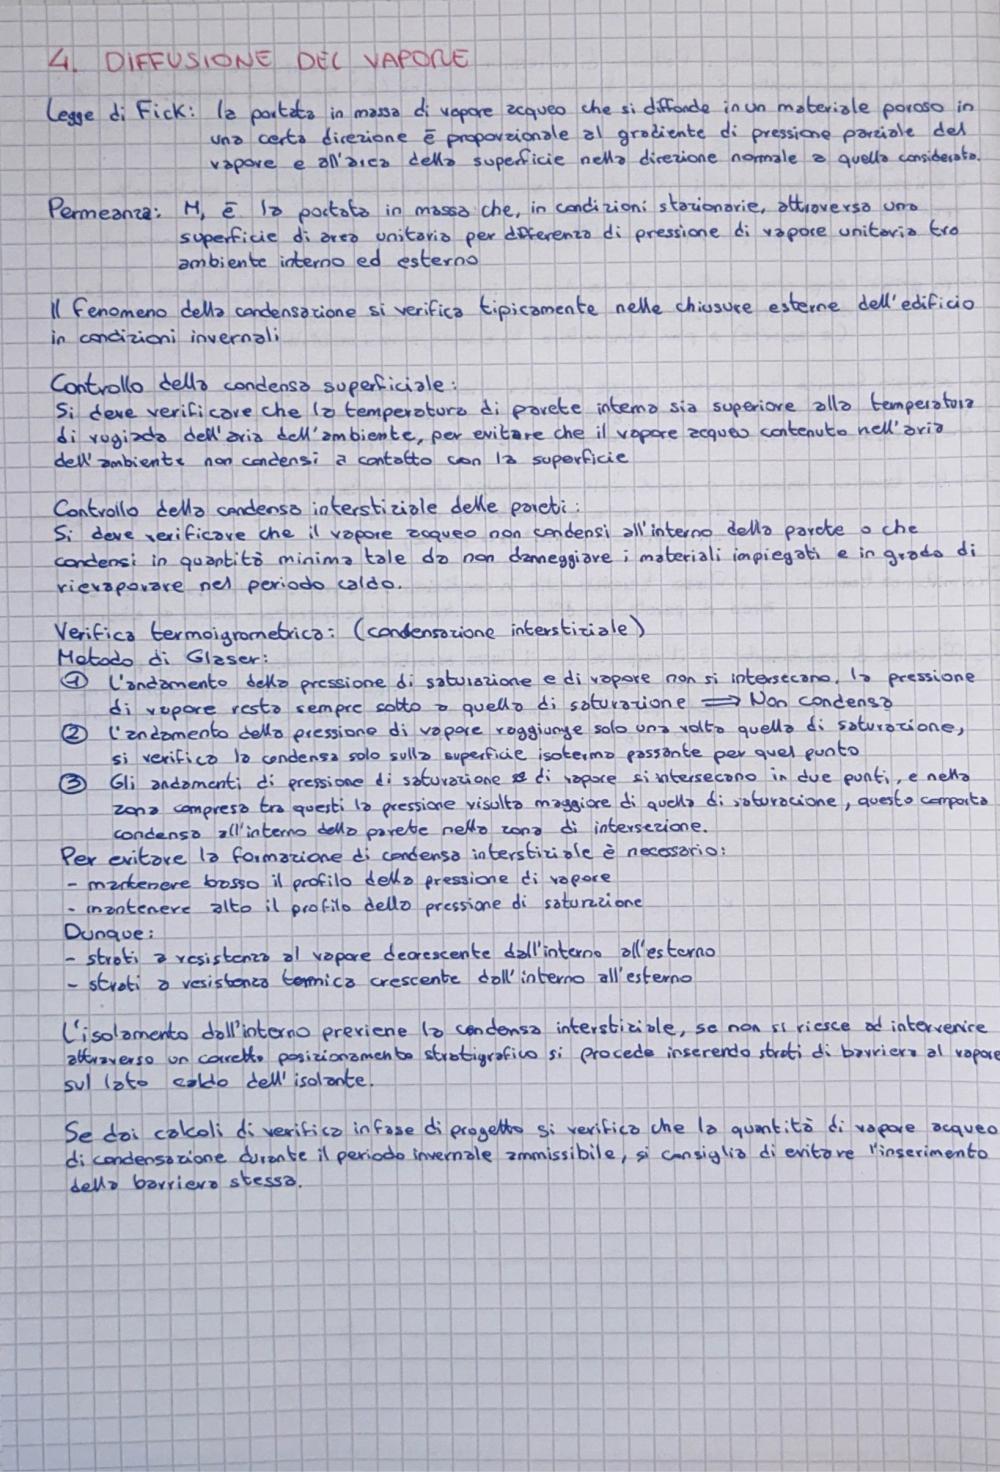 4. DIFFUSIONE DEL VAPORE
Legge di Fick: la portata in massa di vapore acqueo che si diffonde in un materiale poroso in
una certa direzione è proporzionale al gradiente di pressione parziale del
vapore e all'area della superficie nella direzione normale a quella considerata.
Permeanza: M, è la portata in massa che, in condizioni stazionarie, attraversa una
superficie di area unitaria per differenza di pressione di vapore unitaria tra
ambiente interno ed esterno
Il fenomeno della condensazione si verifica tipicamente nelle chiusure esterne dell'edificio
in condizioni invernali
Controllo della condensa superficiale:
Si deve verificare che la temperatura di parete interna sia superiore alla temperatura
di rugiada dell'aria dell'ambiente, per evitare che il vapore acqueo contenuto nell'aria
dell'ambiente non condensi a contatto con la superficie
Controllo della condensa interstiziale delle pareti:
Si deve verificare che il vapore acqueo non condensi all'interno della parete o che
condensi in quantità minima tale da non danneggiare i materiali impiegati e in grado di
rievaporare nel periodo caldo.
Verifica termoigrometrica: (condensazione interstiziale)
Metodo di Glaser:
① L'andamento della pressione di saturazione e di vapore non si intersecano, la pressione
di vapore resta sempre sotto a quella di saturazione ⟹ Non condensa
② L'andamento della pressione di vapore raggiunge solo una volta quella di saturazione,
si verifica la condensa solo sulla superficie isoterma passante per quel punto
③ Gli andamenti di pressione di saturazione e di vapore si intersecano in due punti, e nella
zona compresa tra questi la pressione risulta maggiore di quella di saturazione, questo comporta
condensa all'interno della parete nella zona di intersezione.
Per evitare la formazione di condensa interstiziale è necessario:
- mantenere basso il profilo della pressione di vapore
- mantenere alto il profilo della pressione di saturazione
Dunque:
- strati a resistenza al vapore decrescente dall'interno all'esterno
- strati a resistenza termica crescente dall'interno all'esterno
L'isolamento dall'interno previene la condensa interstiziale, se non si riesce ad intervenire
attraverso un corretto posizionamento stratigrafico si procede inserendo strati di barriera al vapore
sul lato caldo dell'isolante.
Se dai calcoli di verifica in fase di progetto si verifica che la quantità di vapore acqueo
di condensazione durante il periodo invernale ammissibile, si consiglia di evitare l'inserimento
della barriera stessa.